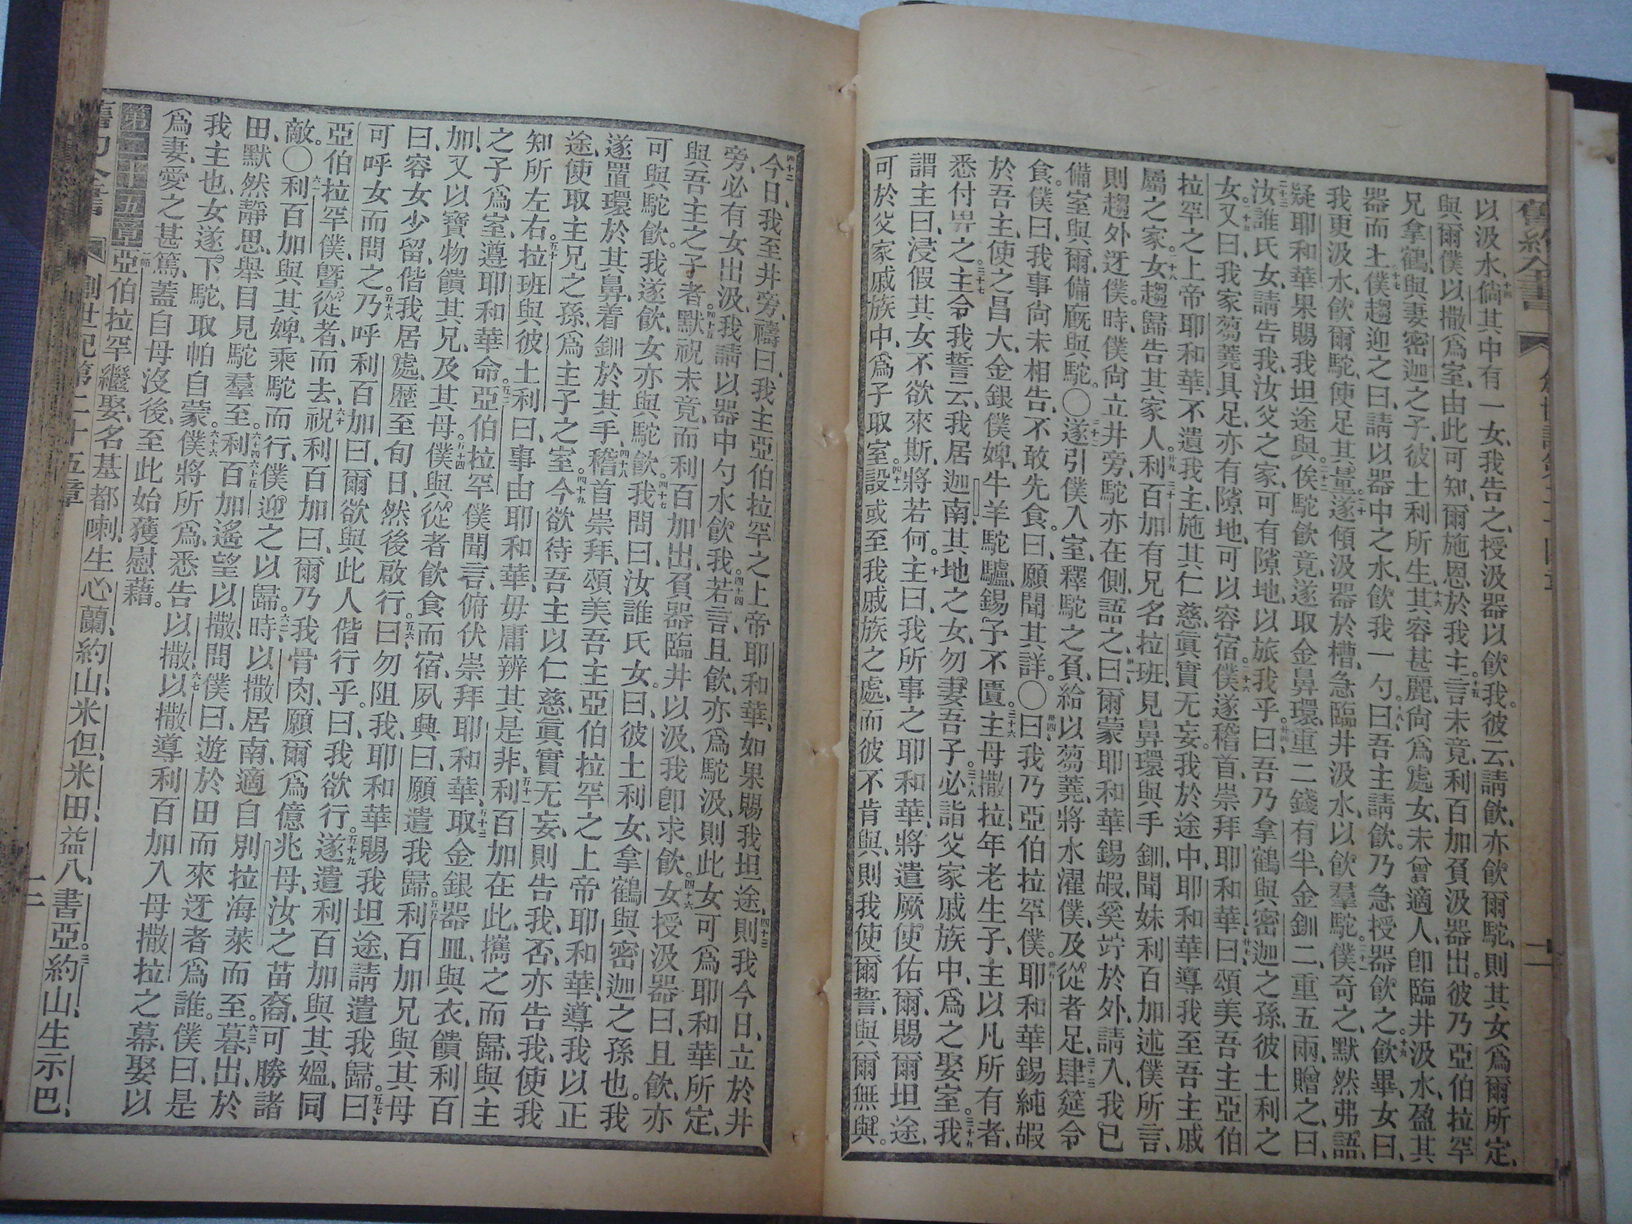 舊約全書
以汲水、倘其中有一女、我告之、授汲器以飲我。彼云、請飲、亦飲爾駝、則其女爲爾所定、
與爾僕以撒爲室、由此可知、爾施恩於我主。言未竟、利百加負汲器出、彼乃亞伯拉罕
兄拿鶴、與妻密迦之子、彼土利所生、其容甚麗、尙爲處女、未曾適人、卽臨井汲水、盈其
器而上、僕趨迎之曰、請以器中之水、飲我一勺。曰、吾主請飲、乃急授器飲之。飲畢、女曰、
我更汲水飲爾駝、使足其量、遂傾汲器於槽、急臨井汲水、以飲羣駝、僕奇之、默然弗語、
疑耶和華果賜我坦途與、俟駝飲竟、遂取金鼻環、重二錢有半、金釧二、重五兩、贈之、曰、
汝誰氏女、請告我、汝父之家、可有隙地、以旅我乎。曰、吾乃拿鶴與密迦之孫、彼土利之
女。又曰、我家芻蕘具足、亦有隙地、可以容宿。僕遂稽首、崇拜耶和華、曰、頌美吾主亞伯
拉罕之上帝耶和華、不遺我主、施其仁慈眞實无妄。我於途中、耶和華導我至吾主戚
屬之家。女趨歸、告其家人。利百加有兄名拉班、見鼻環與手釧、聞妹利百加述僕所言、
則趨外迓僕。時、僕尙立井旁、駝亦在側、語之曰、爾蒙耶和華錫嘏、奚竚於外、請入、我已
備室與爾、備厩與駝。〇遂引僕入室、釋駝之負、給以芻蕘、將水濯僕、及從者足、肆筵令
食。僕曰、我事尙未相告、不敢先食。曰、願聞其詳。〇曰、我乃亞伯拉罕僕、耶和華錫純嘏
於吾主、使之昌大、金銀僕婢、牛羊駝驢、錫予不匱。主母撒拉年老生子、主以凡所有者、
悉付畀之。主令我誓云、我居迦南、其地之女、勿妻吾子。必詣父家戚族中、爲之娶室。我
謂主曰、浸假其女不欲來斯、將若何。主曰、我所事之耶和華、將遣厥使佑爾、賜爾坦途、
可於父家戚族中、爲子取室。設或至我戚族之處、而彼不肯與、則我使爾誓、與爾無與。
今日、我至井旁、禱曰、我主亞伯拉罕之上帝耶和華、如果賜我坦途、則我今日、立於井
旁、必有女出汲、我請以器中勺水飲我。若言、且飲、亦爲駝汲、則此女可爲耶和華所定、
與吾主之子者。默祝未竟、而利百加出、負器臨井以汲、我卽求飲。女授汲器曰、且飲、亦
可與駝飲。我遂飲、女亦與駝飲。我問曰、汝誰氏女。曰、彼土利女、拿鶴與密迦之孫也。我
遂置環於其鼻、着釧於其手。稽首崇拜、頌美吾主亞伯拉罕之上帝耶和華、導我以正
途、使取主兄之孫、爲主子之室。今欲待吾主、以仁慈眞實无妄、則告我、否、亦告我、使我
知所左右。拉班與彼土利曰、事由耶和華、毋庸辨其是非。利百加在此、攜之而歸、與主
之子爲室、遵耶和華命。亞伯拉罕僕聞言、俯伏崇拜耶和華、取金銀器皿、與衣、饋利百
加、又以寶物饋其兄、及其母。僕與從者飲食而宿、夙興、曰、願遣我歸。利百加兄與其母
曰、容女少留、偕我居處、歷至旬日、然後啟行。曰、勿阻我、耶和華賜我坦途、請遣我歸。曰、
可呼女而問之。乃呼利百加曰、爾欲與此人偕行乎。曰、我欲行。遂遣利百加與其媼、同
亞伯拉罕僕、曁從者、而去。祝利百加曰、爾乃我骨肉、願爾爲億兆母、汝之苗裔、可勝諸
敵。〇利百加與其婢乘駝而行、僕迎之以歸。時、以撒居南、適自別拉海萊而至。暮出於
田、默然靜思、舉目見駝羣至。利百加遙望以撒、問僕曰、遊於田而來迓者爲誰。僕曰、是
我主也、女遂下駝、取帕自蒙。僕將所爲悉告以撒。以撒導利百加入母撒拉之幕、娶以
爲妻、愛之甚篤、蓋自母沒後、至此始獲慰藉。
第二十五章 亞伯拉罕繼娶、名基都喇、生心蘭、約山、米但、米田、益八、書亞。約山生示巴、
創世記第二十五章